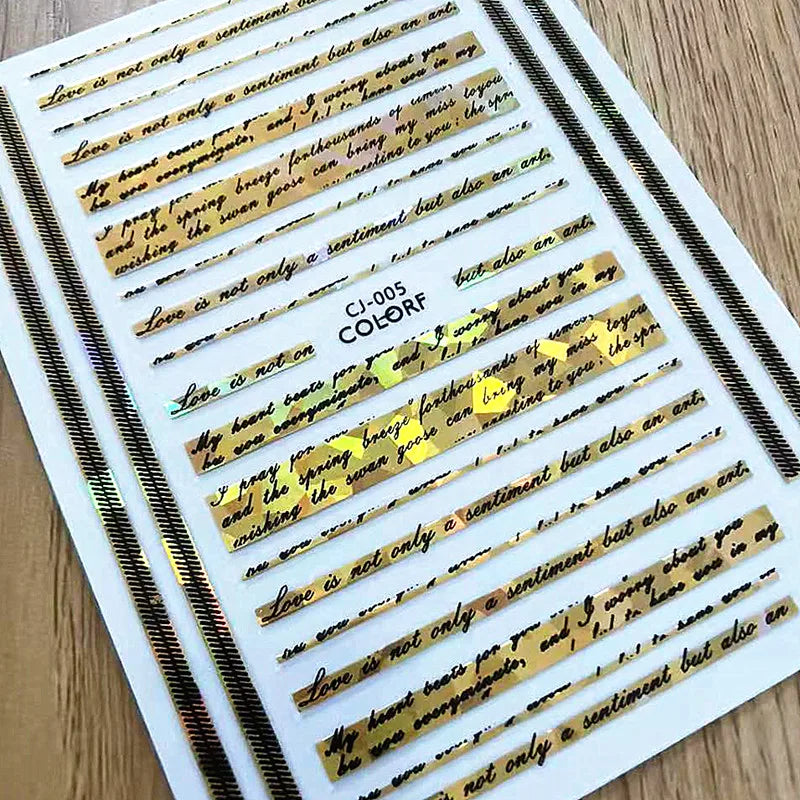 Love is not only a sentiment but also an art.
Love is not only a sentiment but also an art.
My heart beats for you and I worry about you
be you everyminute, to have you in my
I pray for forthousands of times, miss toyou
and the spring breeze can bring my the spr
wishing the swan goose greeting to you:
Love is not only a sentiment but also an art.
Love is not on but also an art.
CJ-005
COLORF
My heart beats for you and I worry about you
be you everyminute, to have you in my
I pray for forthousands of times, miss toyou
and the spring breeze can bring my the spr
wishing the swan goose greeting to you:
Love is not only a sentiment but also an art.
Love is not only a sentiment but also an art.
My heart beats for you and I worry about you
be you everyminute, to have you in my
Love is not only a sentiment but also an
is not only a sentiment but also an